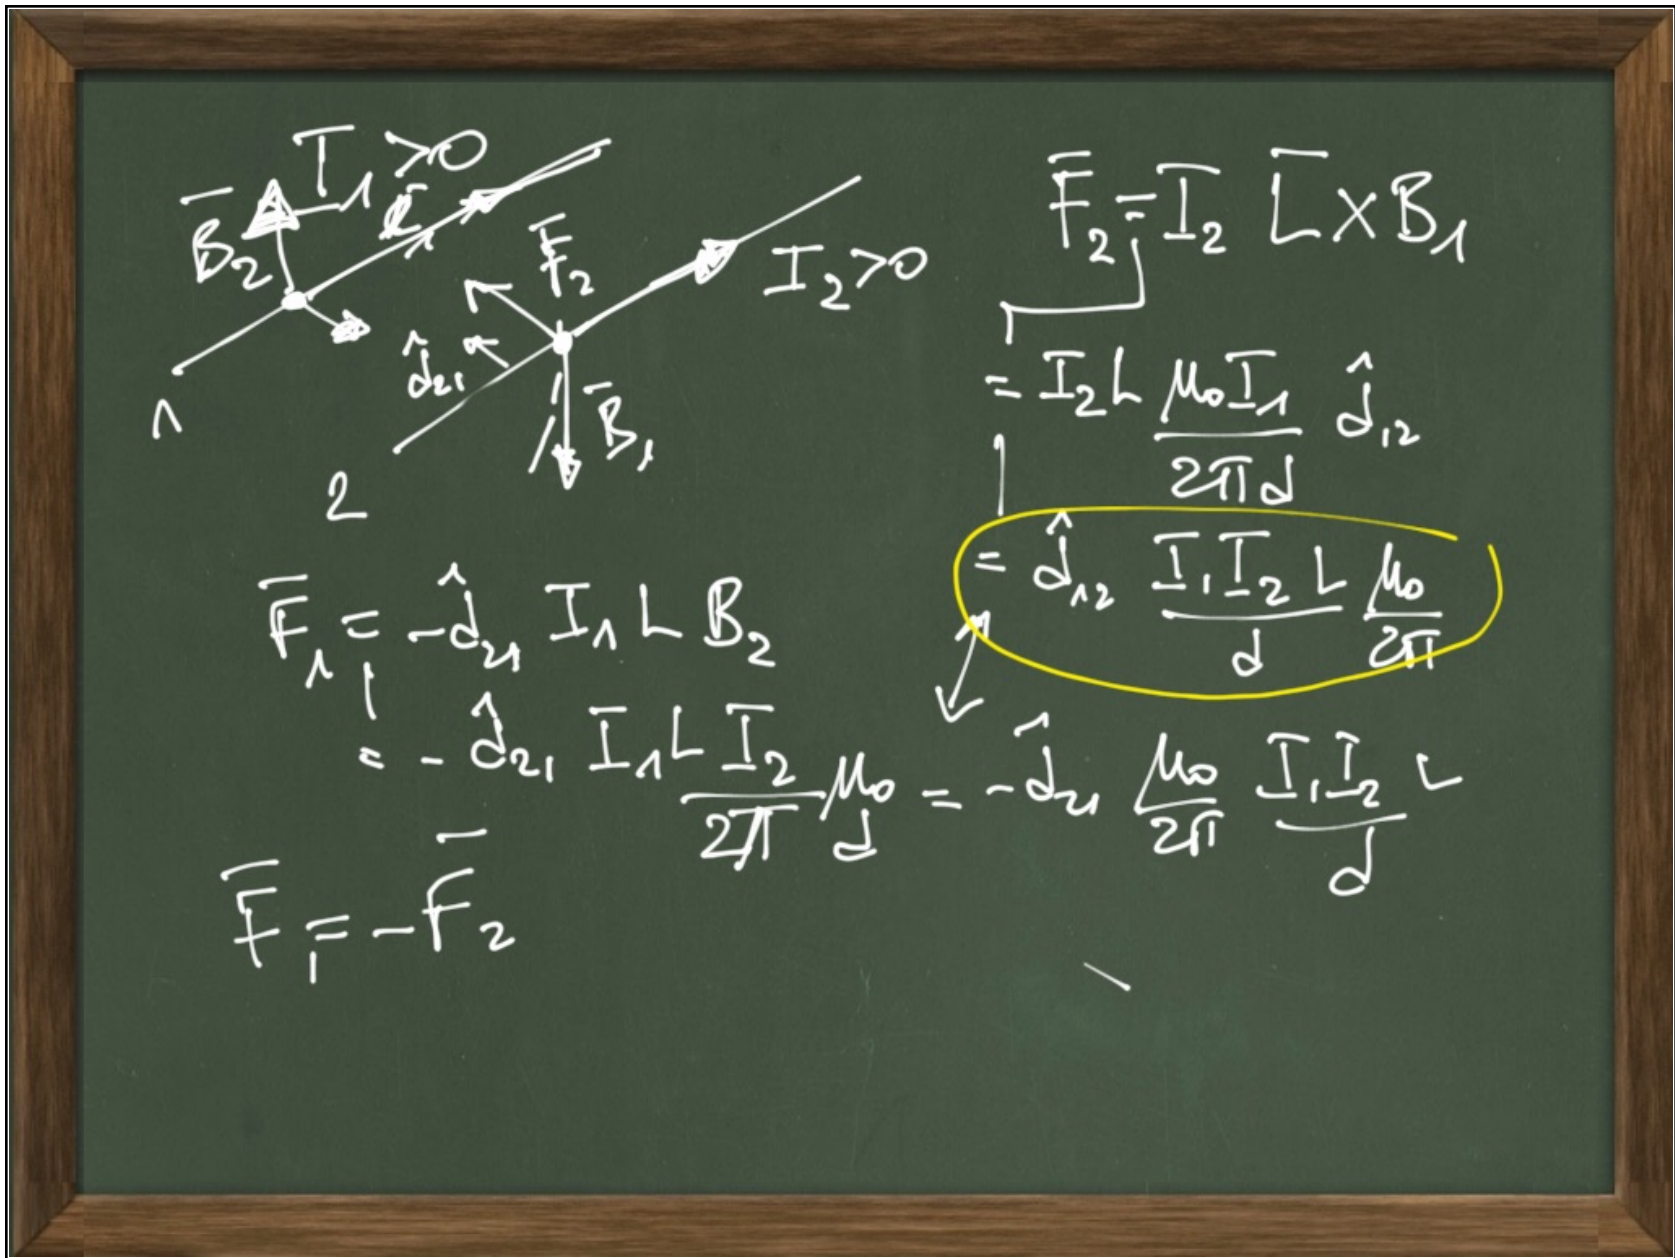 I₁ > 0
B̄₂
F̄₂
I₂ > 0
d̂₂₁
B̄₁
1
2
F̄₂ = I₂ L̄ × B̄₁
= I₂ L μ₀I₁ / 2πd d̂₁₂
= d̂₁₂ I₁I₂ L / d μ₀ / 2π
F̄₁ = -d̂₂₁ I₁ L B₂
= -d̂₂₁ I₁ L I₂ / 2π μ₀ / d = -d̂₂₁ μ₀ / 2π I₁I₂ / d L
F̄₁ = -F̄₂